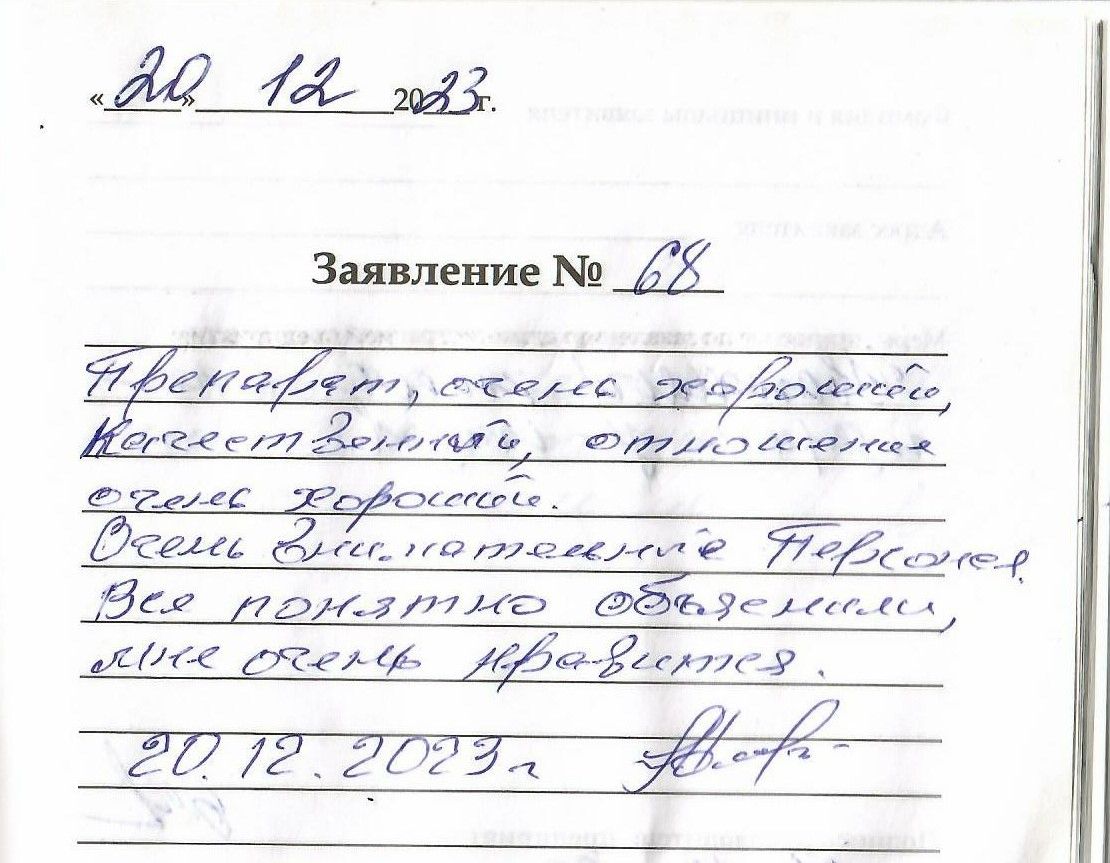 «20» 12 2023г.
Заявление № 68
Препарат, очень хороший,
Качественный, отношения
очень хороший.
Очень внимательные Персонал.
Вся понятно объяснили,
мне очень нравится.
20.12.2023г